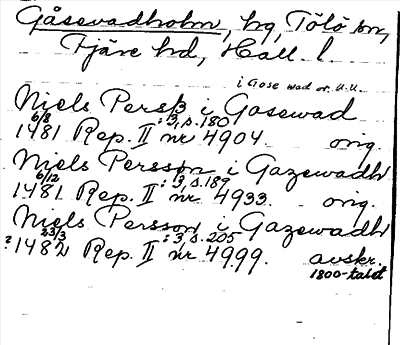 Gåsevadholm, hg, Tölö sn,
Fjäre hd, Hall. l.
i Gose wad or. u.u.
Niels Persß i Gasewad
6/8 :3, s. 180
1481 Rep. II nr 4904. orig.
Niels Persson i Gazewadh
6/12 :3, s. 187
1481 Rep. II nr 4933. orig.
Niels Persson i Gazewadh
23/3 :3, s. 205
? 1482 Rep. II nr 4999. avskr.
1800-talet